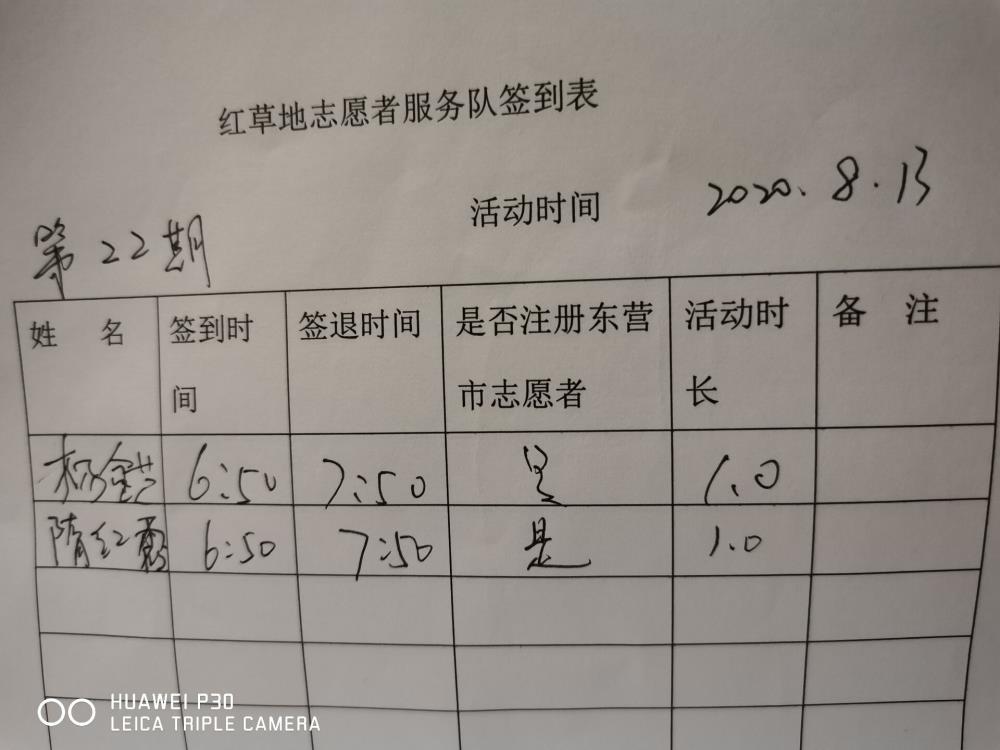 红草地志愿者服务队签到表
活动时间 2020.8.13
第22期
姓 名 签到时间 签退时间 是否注册东营市志愿者 活动时长 备 注
杨金芳 6:50 7:50 是 1.0
隋红霞 6:50 7:50 是 1.0
HUAWEI P30
LEICA TRIPLE CAMERA